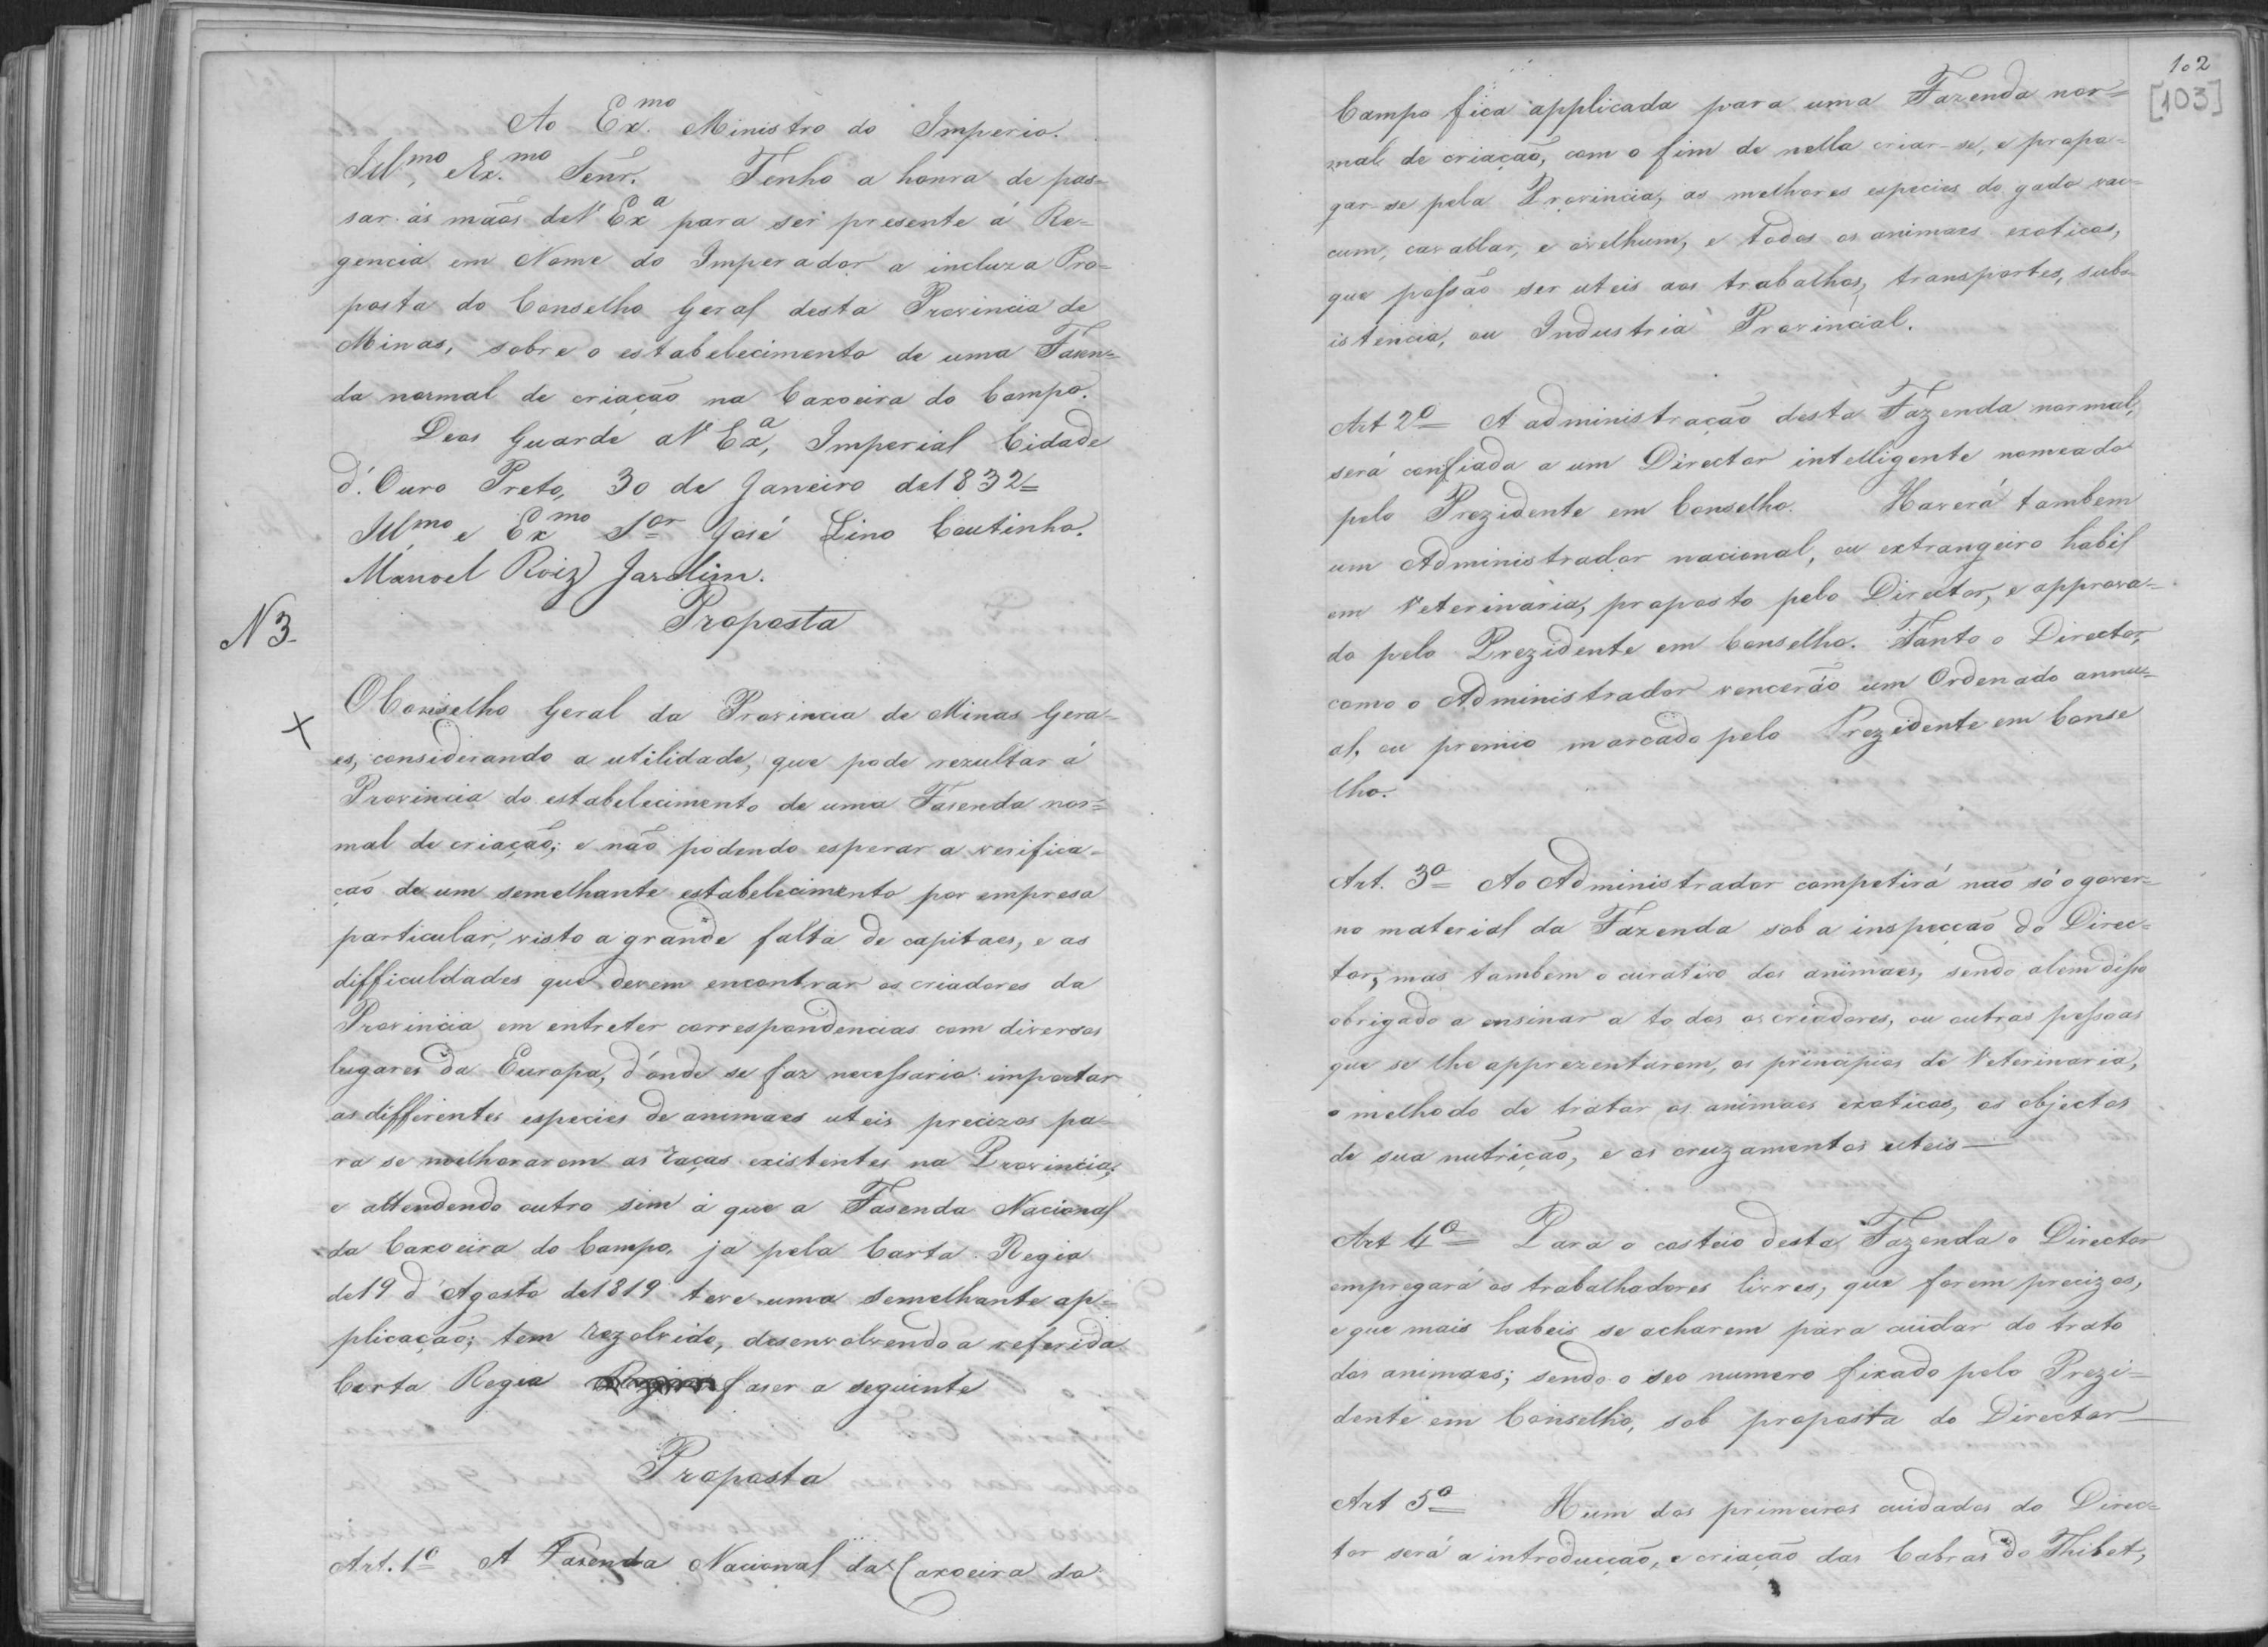 Ao Ex.mo Ministro do Imperio.
Illmo, e Ex.mo Senr. Tenho a honra de pas-
sar ás mãos de V Exa para ser presente á Re-
gencia em Nome do Imperador a incluza Pro-
posta do Conselho Geral desta Provincia de
Minas, sobre o estabelecimento de uma Fasen-
da normal de criação na Caxoeira do Campo.
Deos Guarde a V Exa, Imperial Cidade
d'. Ouro Preto, 30 de Janeiro de 1832=
Illmo e Exmo Sor José Lino Coutinho.
Manoel Roiz Jardim.
Proposta
N 3.
O Conselho Geral da Provincia de Minas Gera-
es, considerando a utilidade, que pode rezultar á
Provincia do estabelecimento de uma Fasenda nor=
mal de criação; e não podendo esperar a verifica-
ção de um semelhante estabelecimento por empresa
particular, visto a grande falta de capitaes, e as
difficuldades que devem encontrar os criadores da
Provincia em entreter correspondencias com diversos
lugares da Europa, d'onde se faz necessario importar
as differentes especies de animaes uteis precizos pa-
ra se melhorarem as raças existentes na Provincia;
e attendendo outro sim á que a Fasenda Nacional
da Caxoeira do Campo, ja pela Carta Regia
de 19 d'Agosto de 1819 teve uma semelhante ap=
plicação; tem rezolvido, desenvolvendo a referida
Carta Regia faser a seguinte
Proposta
Art. 1º A Fasenda Nacional da Caxoeira do
102
[103]
Campo fica applicada para uma Fazenda nor=
mal de criação, com o fim de nella criar-se, e propa-
gar-se pela Provincia, as melhores especies do gado vac-
cum, cavallar, e ovelhum, e todos os animaes exoticos,
que possão ser uteis aos trabalhos, transportes, subs-
istencia, ou Industria Provincial.
Art 2º= A administração desta Fazenda normal,
será confiada a um Director intelligente nomeado
pelo Prezidente em Conselho. Haverá tambem
um Administrador nacional, ou extrangeiro habil
em Veterinaria, proposto pelo Director, e approva-
do pelo Prezidente em Conselho. Tanto o Director,
como o Administrador vencerão um Ordenado annu-
al, ou premio marcado pelo Prezidente em Conse
lho.
Art. 3º= Ao Administrador competirá não só o gover-
no material da Fazenda sob a inspecção do Direc=
tor, mas tambem o curativo dos animaes, sendo alem disso
obrigado a ensinar a todos os criadores, ou outras pessoas
que se lhe apprezentarem, os principios de Veterinaria,
o melhodo de tratar os animaes exoticos, os objectos
de sua nutrição, e os cruzamentos uteis—
Art 4º= Para o costeio desta Fazenda o Director
empregará os trabalhadores livres, que forem precizos,
e que mais habeis se acharem para cuidar do trato
dos animaes; sendo o seo numero fixado pelo Prezi-
dente em Conselho, sob proposta do Director—
Art 5º Hum dos primeiros cuidados do Direc=
tor será a introducção, e criação das Cabras do Thibet,